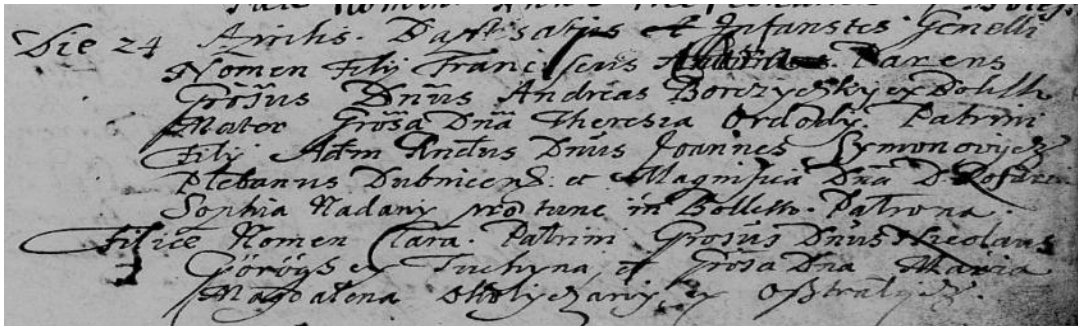 Die 24 Aprilis. Baptisatus et Infanstes Gemelli
Nomen Filij Franciscus Parens
Grosus Dnus Andreas Borczyczky ex Bolless
Mater Grosa Dna Theresia Ordody. Patrini
Filij Adm Rndus Dnus Joannes Symonovijcz
Plebanus Dubnicens. et Magnifica Dna D.
Sophia Nadany pro tunc in Bollesso. Patrona.
Filiae Nomen Clara. Patrini Grosus Dnus Nicolaus
Göröğs ex Tuchyna, et Grosa Dna Maria
Magdalena Skolyczany, ex